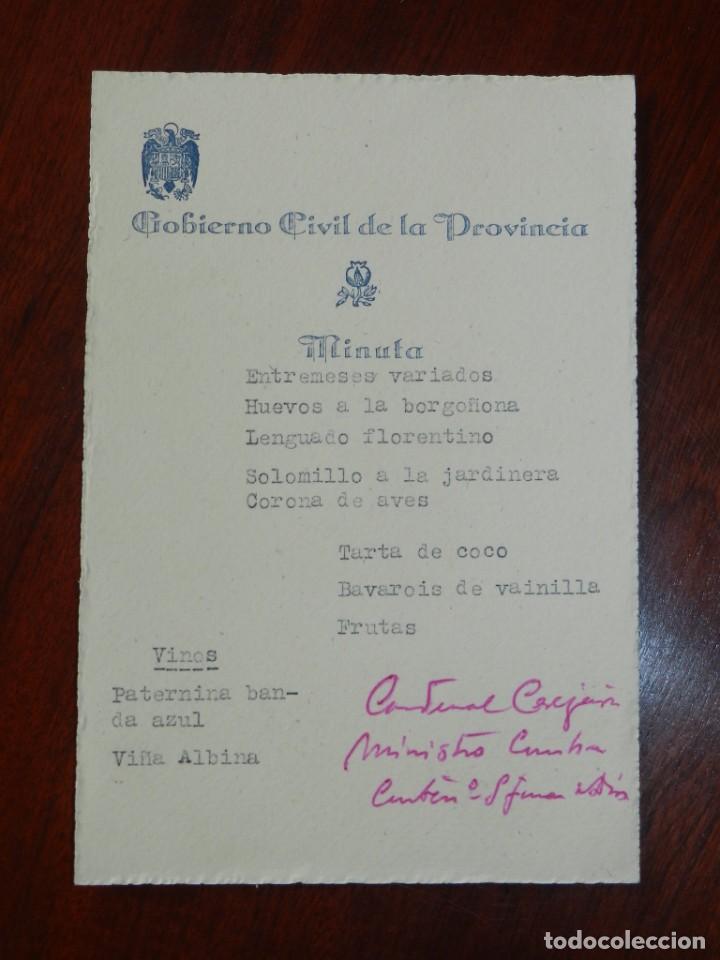 Gobierno Civil de la Provincia
Minuta
Entremeses variados
Huevos a la borgoñona
Lenguado florentino
Solomillo a la jardinera
Corona de aves
Tarta de coco
Bavarois de vainilla
Frutas
Vinos
Paternina ban-
da azul
Viña Albina
Cardenal
Ministro
todocoleccion
todocoleccion.net